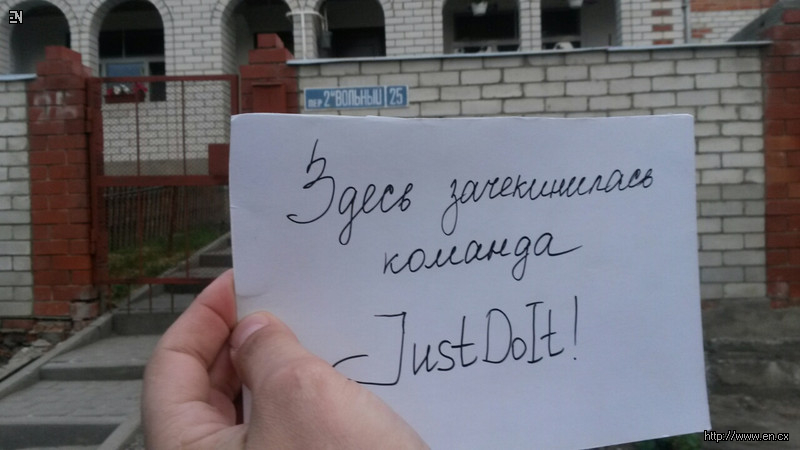 EN
пер 2ой ВОЛЬНЫЙ 25
25
Здесь зачекинилась
команда
JustDoIt!
http://www.en.cx